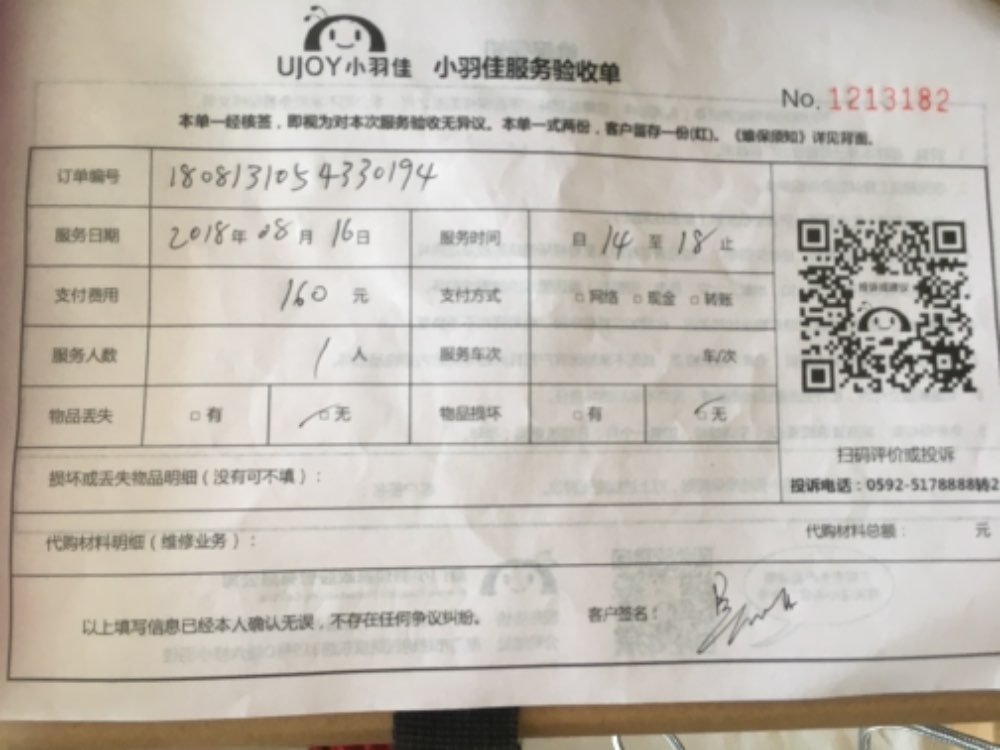 UJOY小羽佳 小羽佳服务验收单
No. 1213182
本单一经核签，即视为对本次服务验收无异议。本单一式两份，客户留存一份(红)。《维保须知》详见背面。
订单编号 1808131054330194
服务日期 2018年 08月 16日 服务时间 自 14 至 18 止
支付费用 160 元 支付方式 □ 网络 □ 现金 □ 转账
服务人数 1 人 服务车次 车/次
物品丢失 □ 有 □ 无 物品损坏 □ 有 □ 无
投诉或建议
扫码评价或投诉
投诉电话：0592-5178888转2
损坏或丢失物品明细（没有可不填）：
代购材料明细（维修业务）： 代购材料总额： 元
以上填写信息已经本人确认无误，不存在任何争议纠纷。 客户签名：